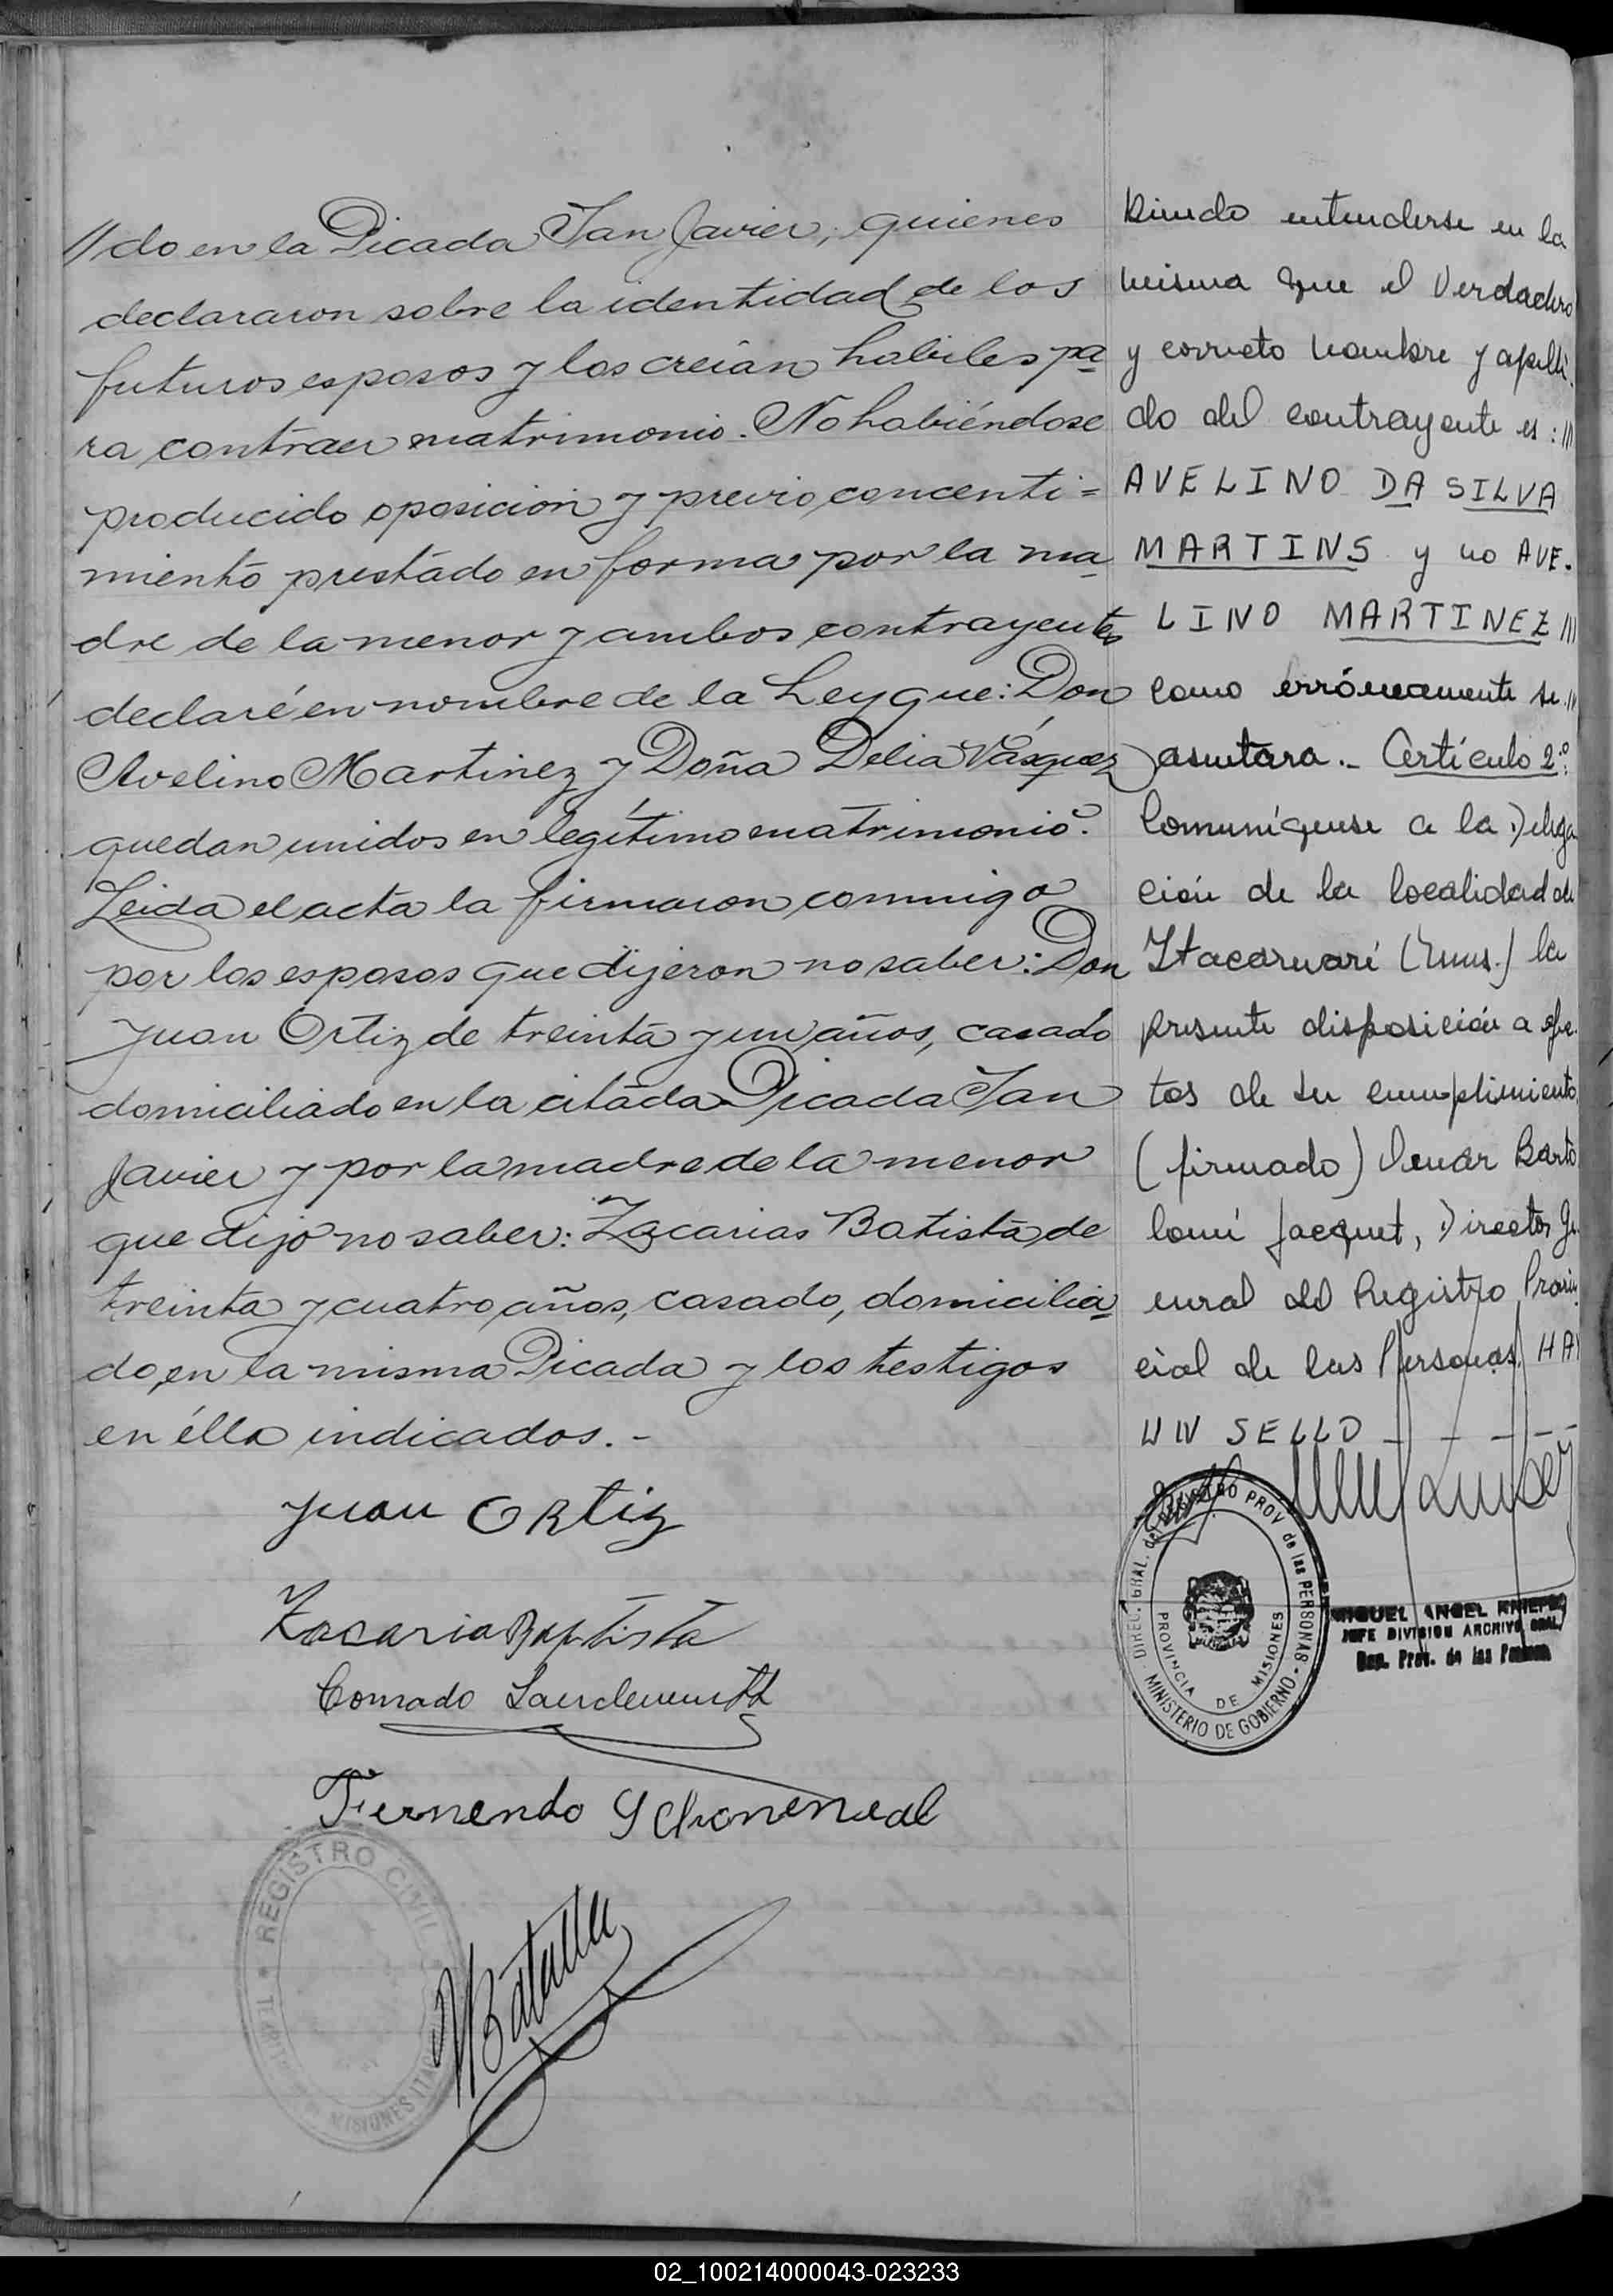 //do en la Picada San Javier, quienes
declararon sobre la identidad de los
futuros esposos y los creían habiles pa
ra contraer matrimonio. No habiéndose
producido oposición y previo concenti=
miento prestado en forma por la ma
dre de la menor y ambos contrayentes
declaré en nombre de la Ley que: Don
Avelino Martinez y Doña Delia Vásquez
quedan unidos en legítimo matrimonio.
Leida el acta la firmaron conmigo
por los esposos que dijeron no saber: Don
Juan Ortiz de treinta y un años, casado
domiciliado en la citada Picada San
Javier y por la madre de la menor
que dijo no saber: Zacarias Batista de
treinta y cuatro años, casado, domicilia
do, en la misma Picada y los testigos
en élla indicados.-
Juan ORtiz
Zacaria Baptista
Conrado
Fernendo
REGISTRO CIVIL
MISIONES
biendo entenderse en la
misma que el verdadero
y correcto nombre y apelli
do del contrayente es: //
AVELINO DA SILVA
MARTINS y no AVE-
LINO MARTINEZ ///
como erróneamente se //
asentara.- Artículo 2º:
Comuníquese a la Delega
ción de la localidad de
Itacaruaré (Mnes.) la
presente disposición a efe
tos de su cumplimiento
(firmado) Barto
lomé Jacquet, Director Ge
neral del Registro Provin
cial de las Personas. HAY
UN SELLO - - - - -
DIREC. GRAL. del REGISTRO PROV de las PERSONAS
PROVINCIA DE MISIONES
MINISTERIO DE GOBIERNO
MIGUEL ANGEL
JEFE DIVISION ARCHIVO GRAL.
Reg. Prov. de las Personas
02_100214000043-023233